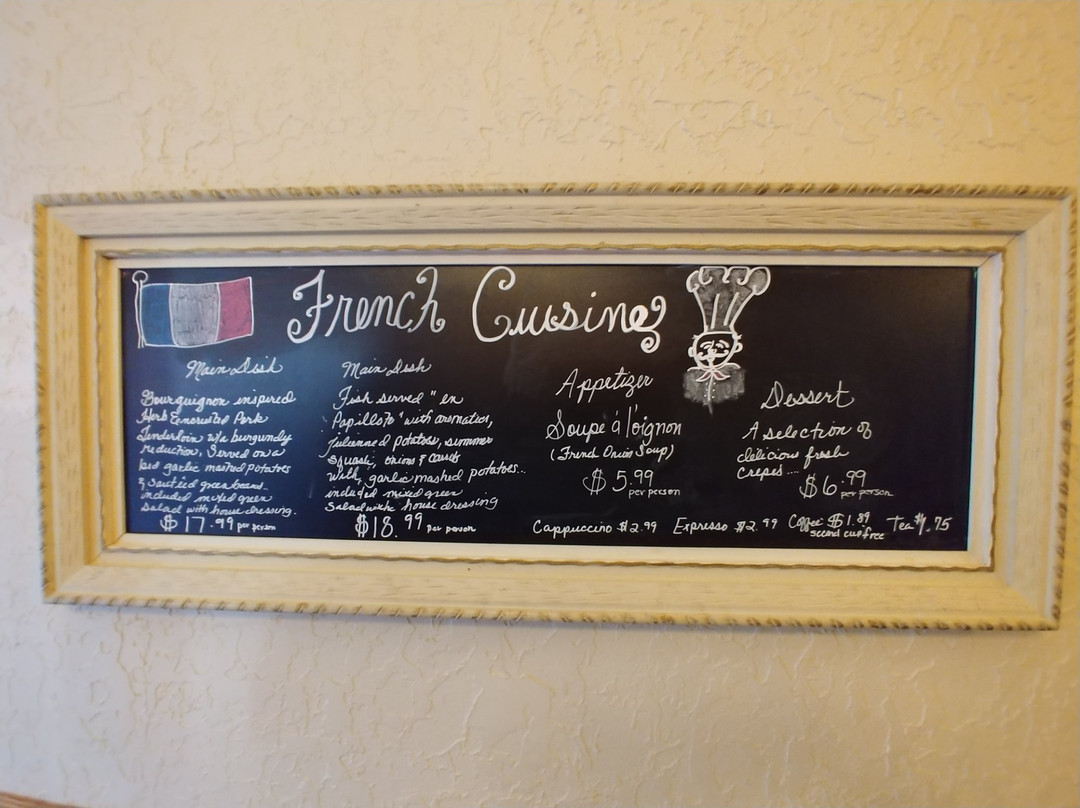 French Cuisine
Main Dish
Bourguignon inspired
Herb Encrusted Pork
Tenderloin w/a burgundy
reduction, Served on a
bed garlic mashed potatoes
& Sautéed green beans..
included mixed green
Salad with house dressing.
$17.99 per person
Main Dish
Fish served "en
Papillote" with aromatics,
Julienned potatoes, summer
Squash, onions &
with, garlic mashed potatoes...
included mixed green
Salad with house dressing
$18.99 per person
Appetizer
Soupe à l'oignon
(French Onion Soup)
$5.99
per person
Dessert
A selection of
delicious fresh
Crepes....
$6.99
per person
Cappuccino $2.99 Expresso $2.99 Coffee $1.89 Tea $1.75
second cup free